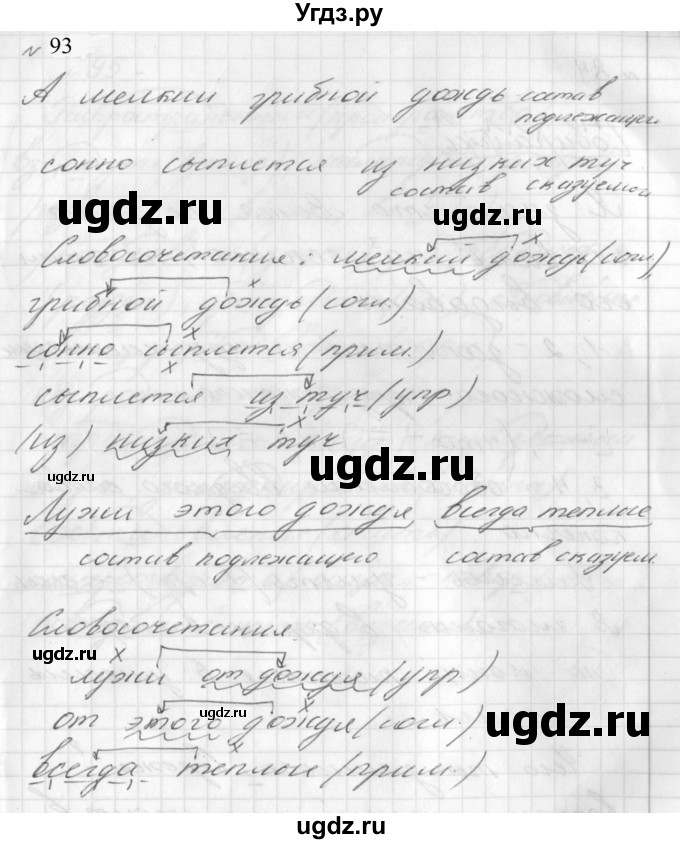 Решебники на
ugdz.ru
№ 93
А мелкий грибной дождь состав
подлежащ.
сонно сыплется из низких туч
состав сказуемой
ugdz.ru
ugdz.ru
Словосочетания: мелкий дождь (согл.),
грибной дождь (согл.)
сонно сыплется (прим.)
сыплется из туч (упр)
(из) низких туч
ugdz.ru
ugdz.ru
Лужи этого дождя всегда теплые
состав подлежащего состав сказуем.
Словосочетания.
ugdz.ru
лужи от дождя (упр.)
от этого дождя (согл.)
ugdz.ru
ugdz.ru
всегда теплые (прим.)
ugdz.ru